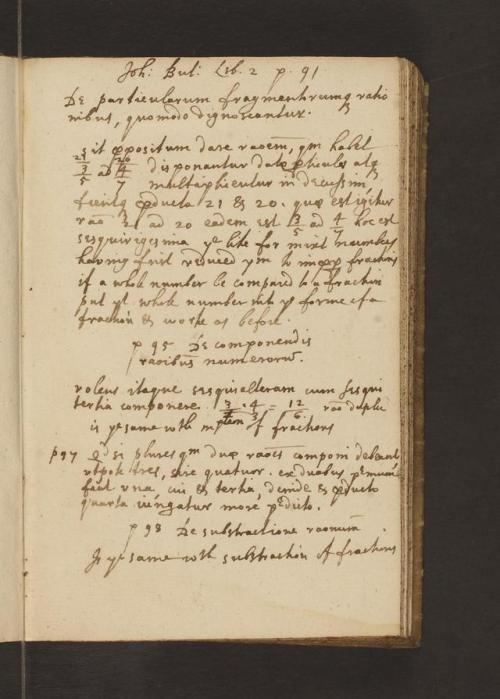 Joh: But: Lib. 2 p. 91
De particularum fragmentorumq ratio
nibus, quomodo dignoscantur.
sit ppositum dare raoem, qm habet
21 20
3/5 ad 4/7 disponantur datæ pticulæ atq
multiplicentur in decussim,
fientq pducta 21 & 20. quæ est igitur
rao 21 ad 20 eadem est 3/5 ad 4/7 hoc est
sesquivigesima ye like for mixt numbers
having first reduced ym to impp fractions
if a whole number be compared to a fraction
put yt whole number into ye forme of a
fraction & worke as before.
p 95 De componendis
raoibus numerorū.
volens itaque sesquialteram cum sesqui
tertia componere. 3/2 · 4/3 = 12/6. rao dupla
is ye same with mptem of fractions
p 97 qd si plures qm duæ raoes componi debeant
utpote tres, sive quatuor. ex duabus pmum
fiat una, cui & tertia, deinde & pducto
quarta iungatur more pdicto.
p 98 De substractione raonum.
Is ye same with substraction of fractions